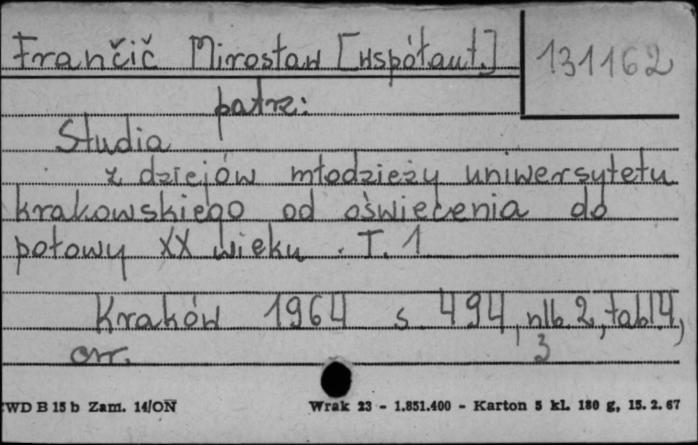 Frančič Mirosław [współaut.] 131162
patrz:
Studia
z dziejów młodzieży uniwersytetu
krakowskiego od oświecenia do
połowy XX wieku. T. 1
Kraków 1964 s. 494, nlb. 2, tabl 4,
err. 3
WD B 15 b Zam. 14/ON Wrak 23 - 1.851.400 - Karton 5 kl. 180 g, 15. 2. 67